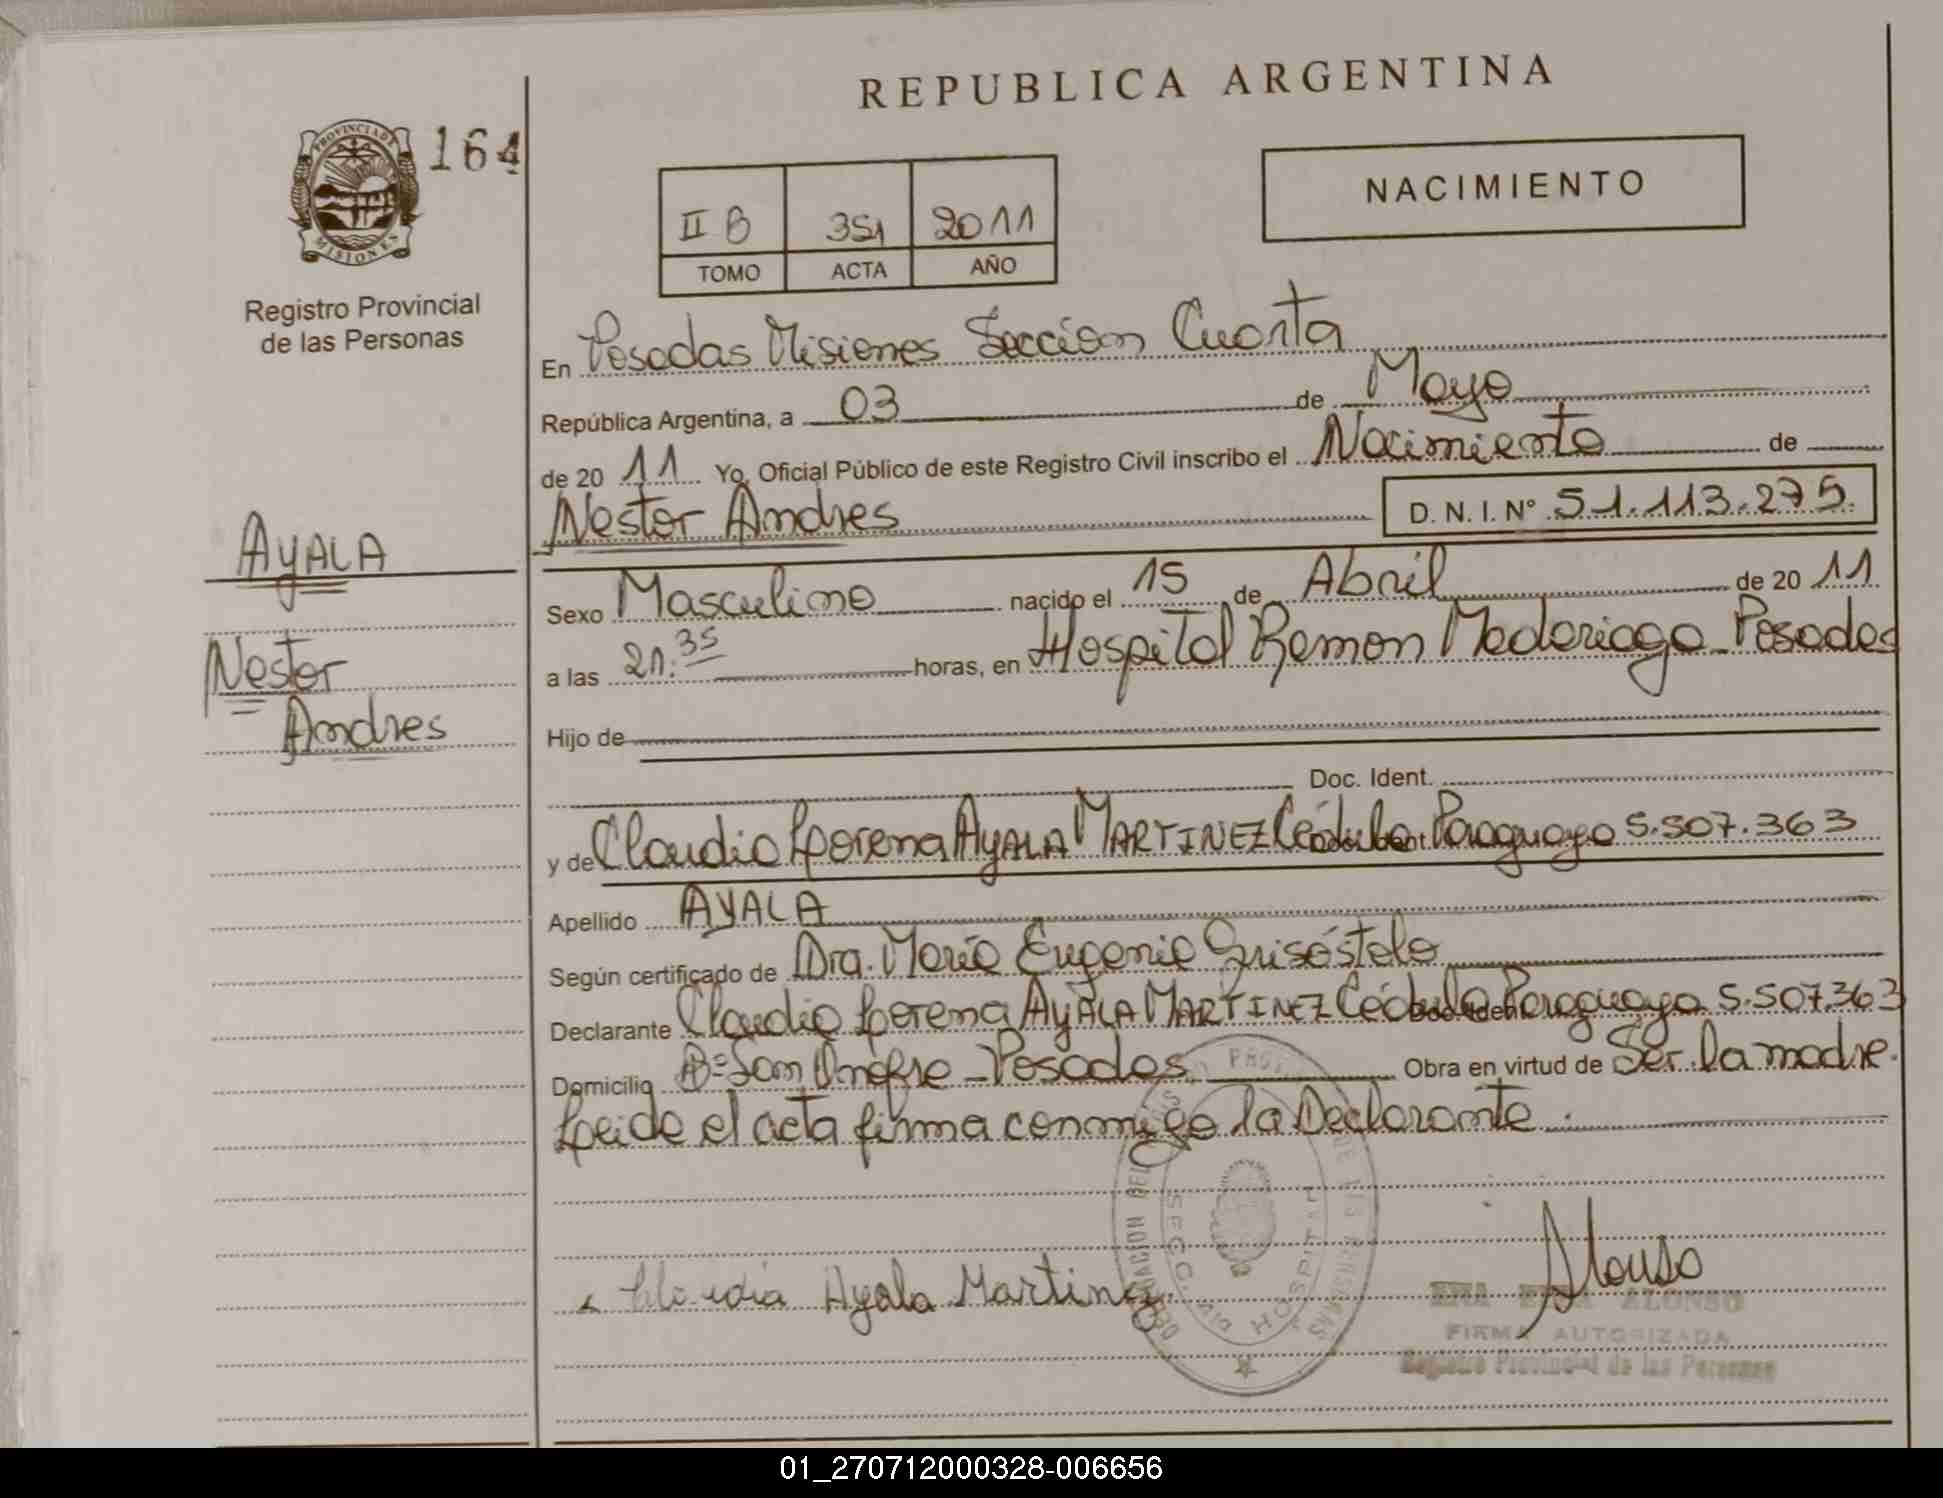 REPUBLICA ARGENTINA
PROVINCIA DE MISIONES
164
Registro Provincial
de las Personas
NACIMIENTO
II B 351 2011
TOMO ACTA AÑO
En Posadas Misiones Sección Cuarta
República Argentina, a 03 de Mayo
de 2011 Yo, Oficial Público de este Registro Civil inscribo el Nacimiento de
Nestor Andres D. N. I. Nº 51.113.275.
AYALA
Nestor
Andres
Sexo Masculino nacido el 15 de Abril de 2011
a las 21:35 horas, en Hospital Ramon Madariaga - Posadas
Hijo de
Doc. Ident.
y de Claudia Lorena AYALA MARTINEZ Cédula Paraguaya 5.507.363
Apellido AYALA
Según certificado de Dra. María Eugenia Grisóstolo
Declarante Claudia Lorena AYALA MARTINEZ Cédula Paraguaya 5.507.363
Domicilio Bº San Onofre - Posadas Obra en virtud de Ser la madre.
Leida el acta firma conmigo la Declarante.
Claudia Ayala Martinez
Alonso
ALONSO
FIRMA AUTORIZADA
Registro Provincial de las Personas
SECC. HOSPITAL
01_270712000328-006656